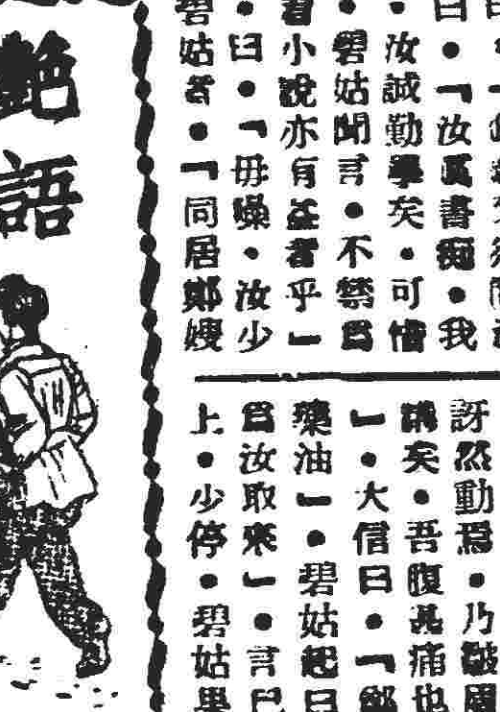 曰●『汝眞書痴●我
●汝誠勤學矣●可惜
●碧姑聞言●不禁爲
看小說亦有益者乎』
●曰●『毋噪●汝少
碧姑答●『同居鄭嫂
訝然動焉●乃皺眉
矣●吾腹甚痛也
』●大信曰●『
藥油』●碧姑起曰
爲汝取來』●言已
上●少停●碧姑果
艷語